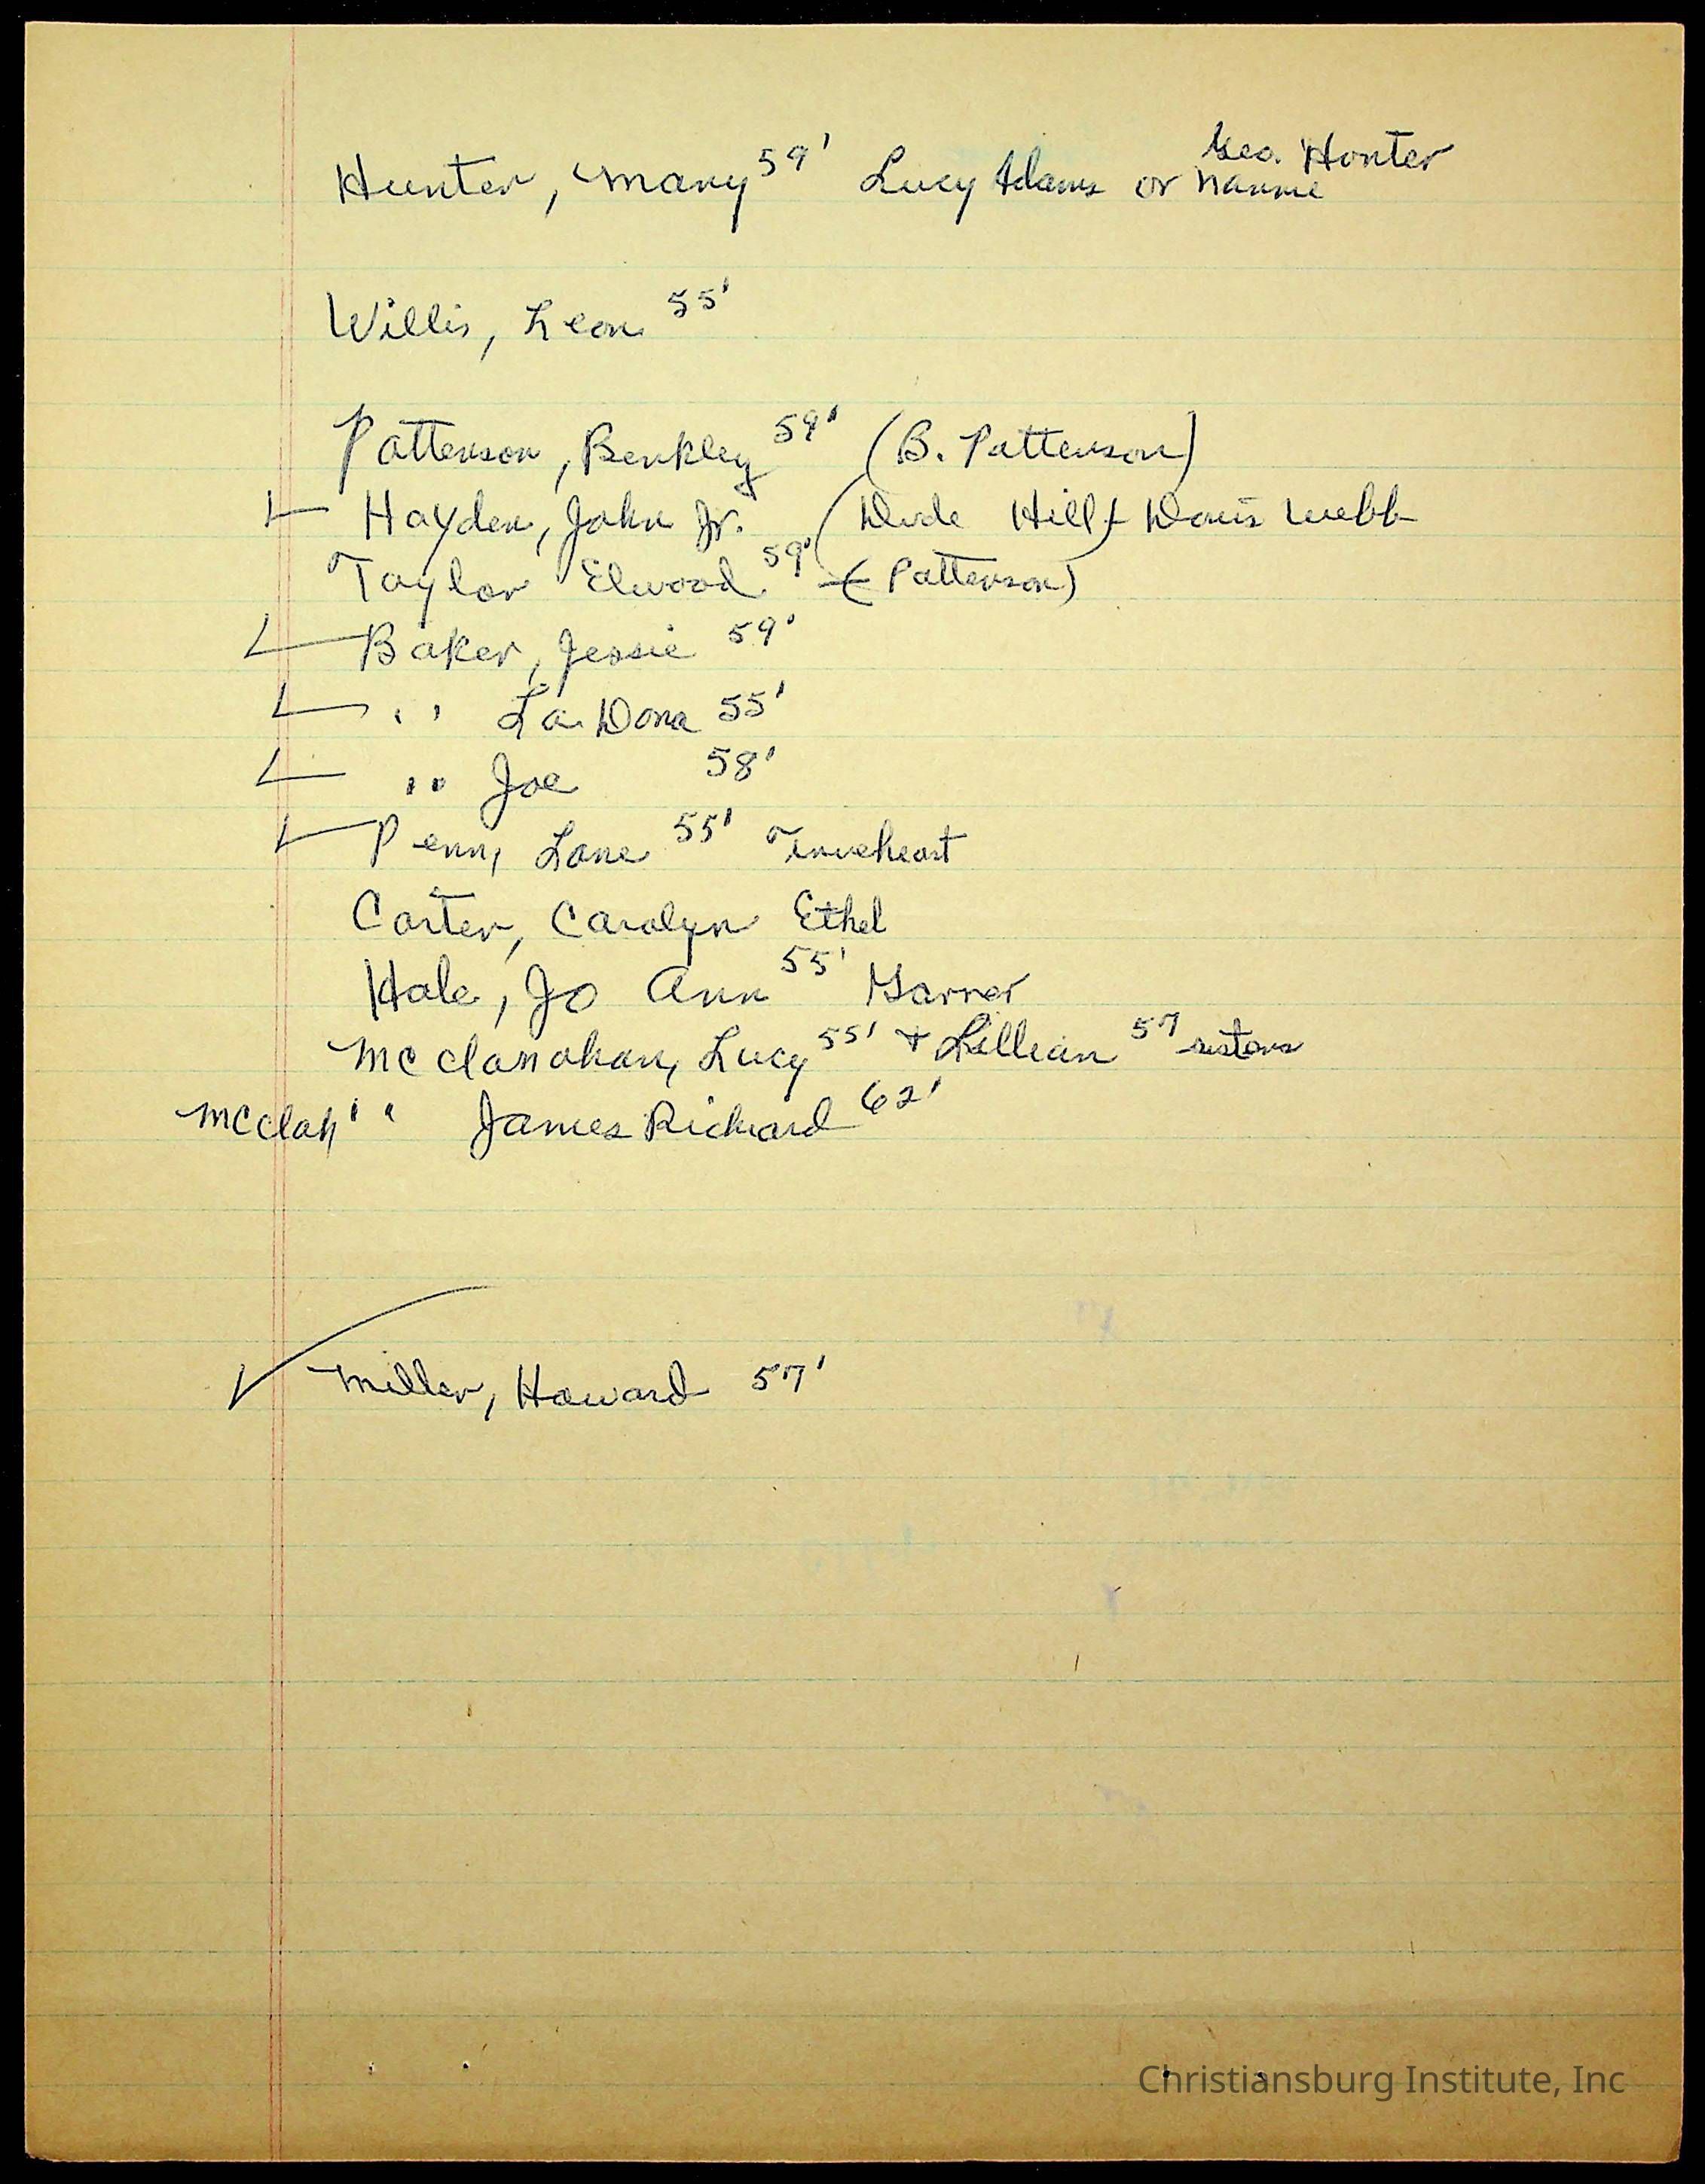 Geo. Hunter
Hunter, Mary 59' Lucy Adams or Nannie
Willis, Leon 55'
Patterson, Berkley 59' (B. Patterson)
Hayden, John Jr. (Dude Hill) + Doris Webb
Taylor Elwood 59' (Patterson)
Baker, Jessie 59'
" La Dona 55'
" Joe 58'
Penn, Lane 55' Trueheart
Carter, Carolyn Ethel
Hale, Jo Ann 55' Garner
McClanahan, Lucy 55' + Lillian 57 sisters
McClan " James Richard 62'
Miller, Howard 57'
Christiansburg Institute, Inc